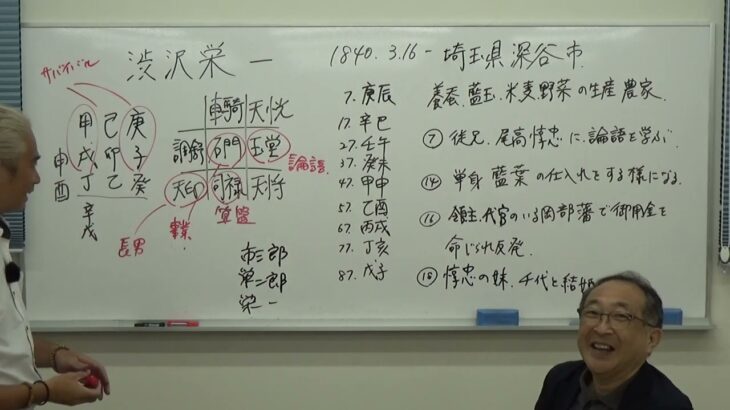 渋沢栄一
1840. 3.16 - 埼玉県深谷市
サバイバル
甲 己 庚
申酉 戌 卯 子
丁 乙 癸
辛
戊
車騎 天恍
調舒 石門 玉堂
天印 司禄 天将
論語
算盤
長男
市三郎
栄二郎
栄一
7. 庚辰
17. 辛巳
27. 壬午
37. 癸未
47. 甲申
57. 乙酉
67. 丙戌
77. 丁亥
87. 戊子
養蚕、藍玉、米麦野菜の生産農家、
⑦ 従兄、尾高惇忠に、論語を学ぶ。
⑭ 単身 藍葉の仕入れをする様になる。
⑯ 領主、代官のいる岡部藩で御用金を
命じられ反発。
⑱ 惇忠の妹、千代と結婚